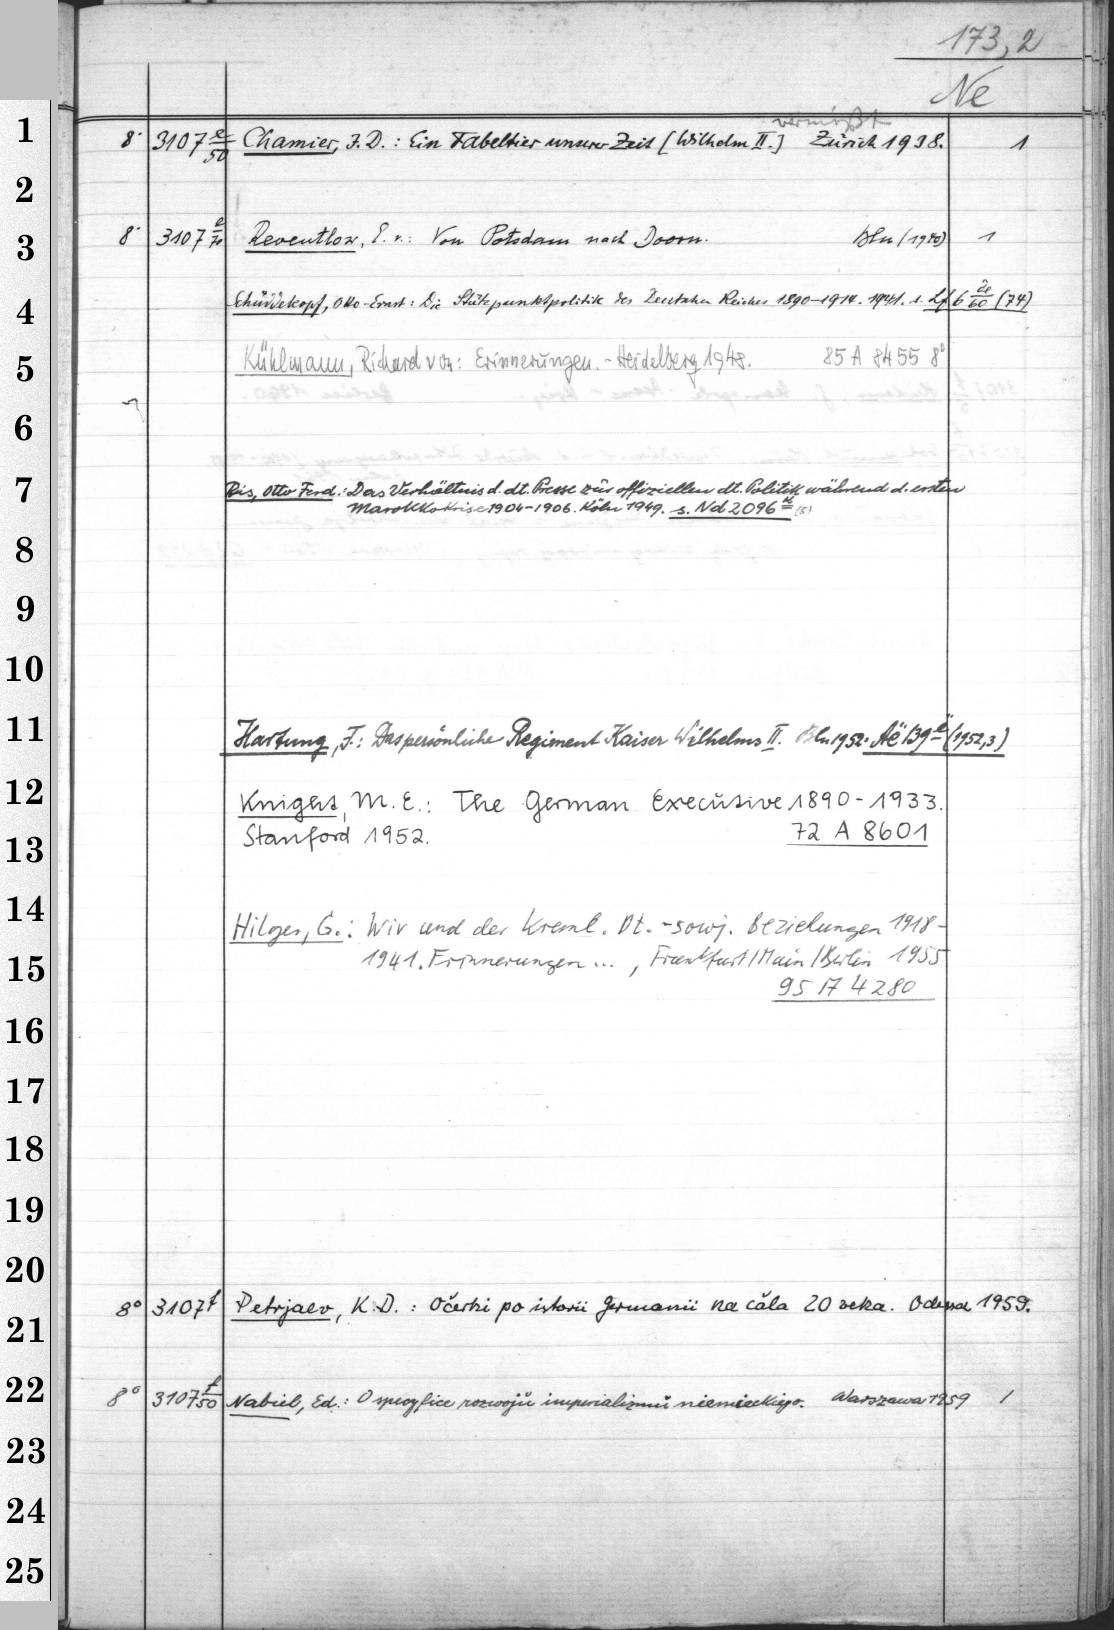 173,2
Ne
vermißt
1 8° 3107 e/50 Chamier, J. D.: Ein Fabeltier unserer Zeit [Wilhelm II.] Zürich 1938. 1
2
3 8° 3107 e/70 Reventlow, E. v.: Von Potsdam nach Doorn. Bln (1940) 1
4 Schüddekopf, Otto-Ernst: Die Stützpunktpolitik des Deutschen Reiches 1890-1914. 1941. s. (74)
5 Kühlmann, Richard von: Erinnerungen. - Heidelberg 1948. 85 A 8455 8°
6
7 Ris, Otto Ferd.: Das Verhältnis d. dt. Presse zur offiziellen dt. Politik während d. ersten
Marokkokrise 1904-1906. Köln 1949. s. Nd 2096
8
9
10
11 Hartung, F.: Das persönliche Regiment Kaiser Wilhelms II. Bln 1952. Aë 139 ë (1952,3)
12 Knight, M. E.: The German Executive 1890-1933.
13 Stanford 1952. 72 A 8601
14 Hilger, G.: Wir und der Kreml. Dt.-sowj. Beziehungen 1918-
15 1941. Erinnerungen ..., Frankfurt/Main/Berlin 1955
95 A 4280
16
17
18
19
20
21 8° 3107 f Petrjaev, K. D.: Očerki po istorii Germanii na čala 20 veka. Odessa 1959.
22 8° 3107 f/50 Nabiel, Ed.: O specyfice rozwoju imperializmu niemieckiego. Warszawa 1959 1
23
24
25